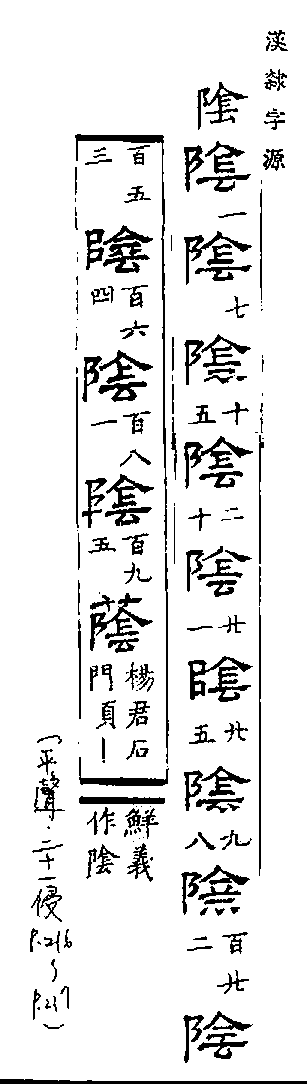 漢隸字源
陰陰一陰七陰十五陰二十陰廿一陰廿五陰九八陰百廿二陰
百五三陰百六四陰百八一陰百九五蔭楊君石門頁
鮮義作陰
(平聲・二十一侵 P.216～P.217)